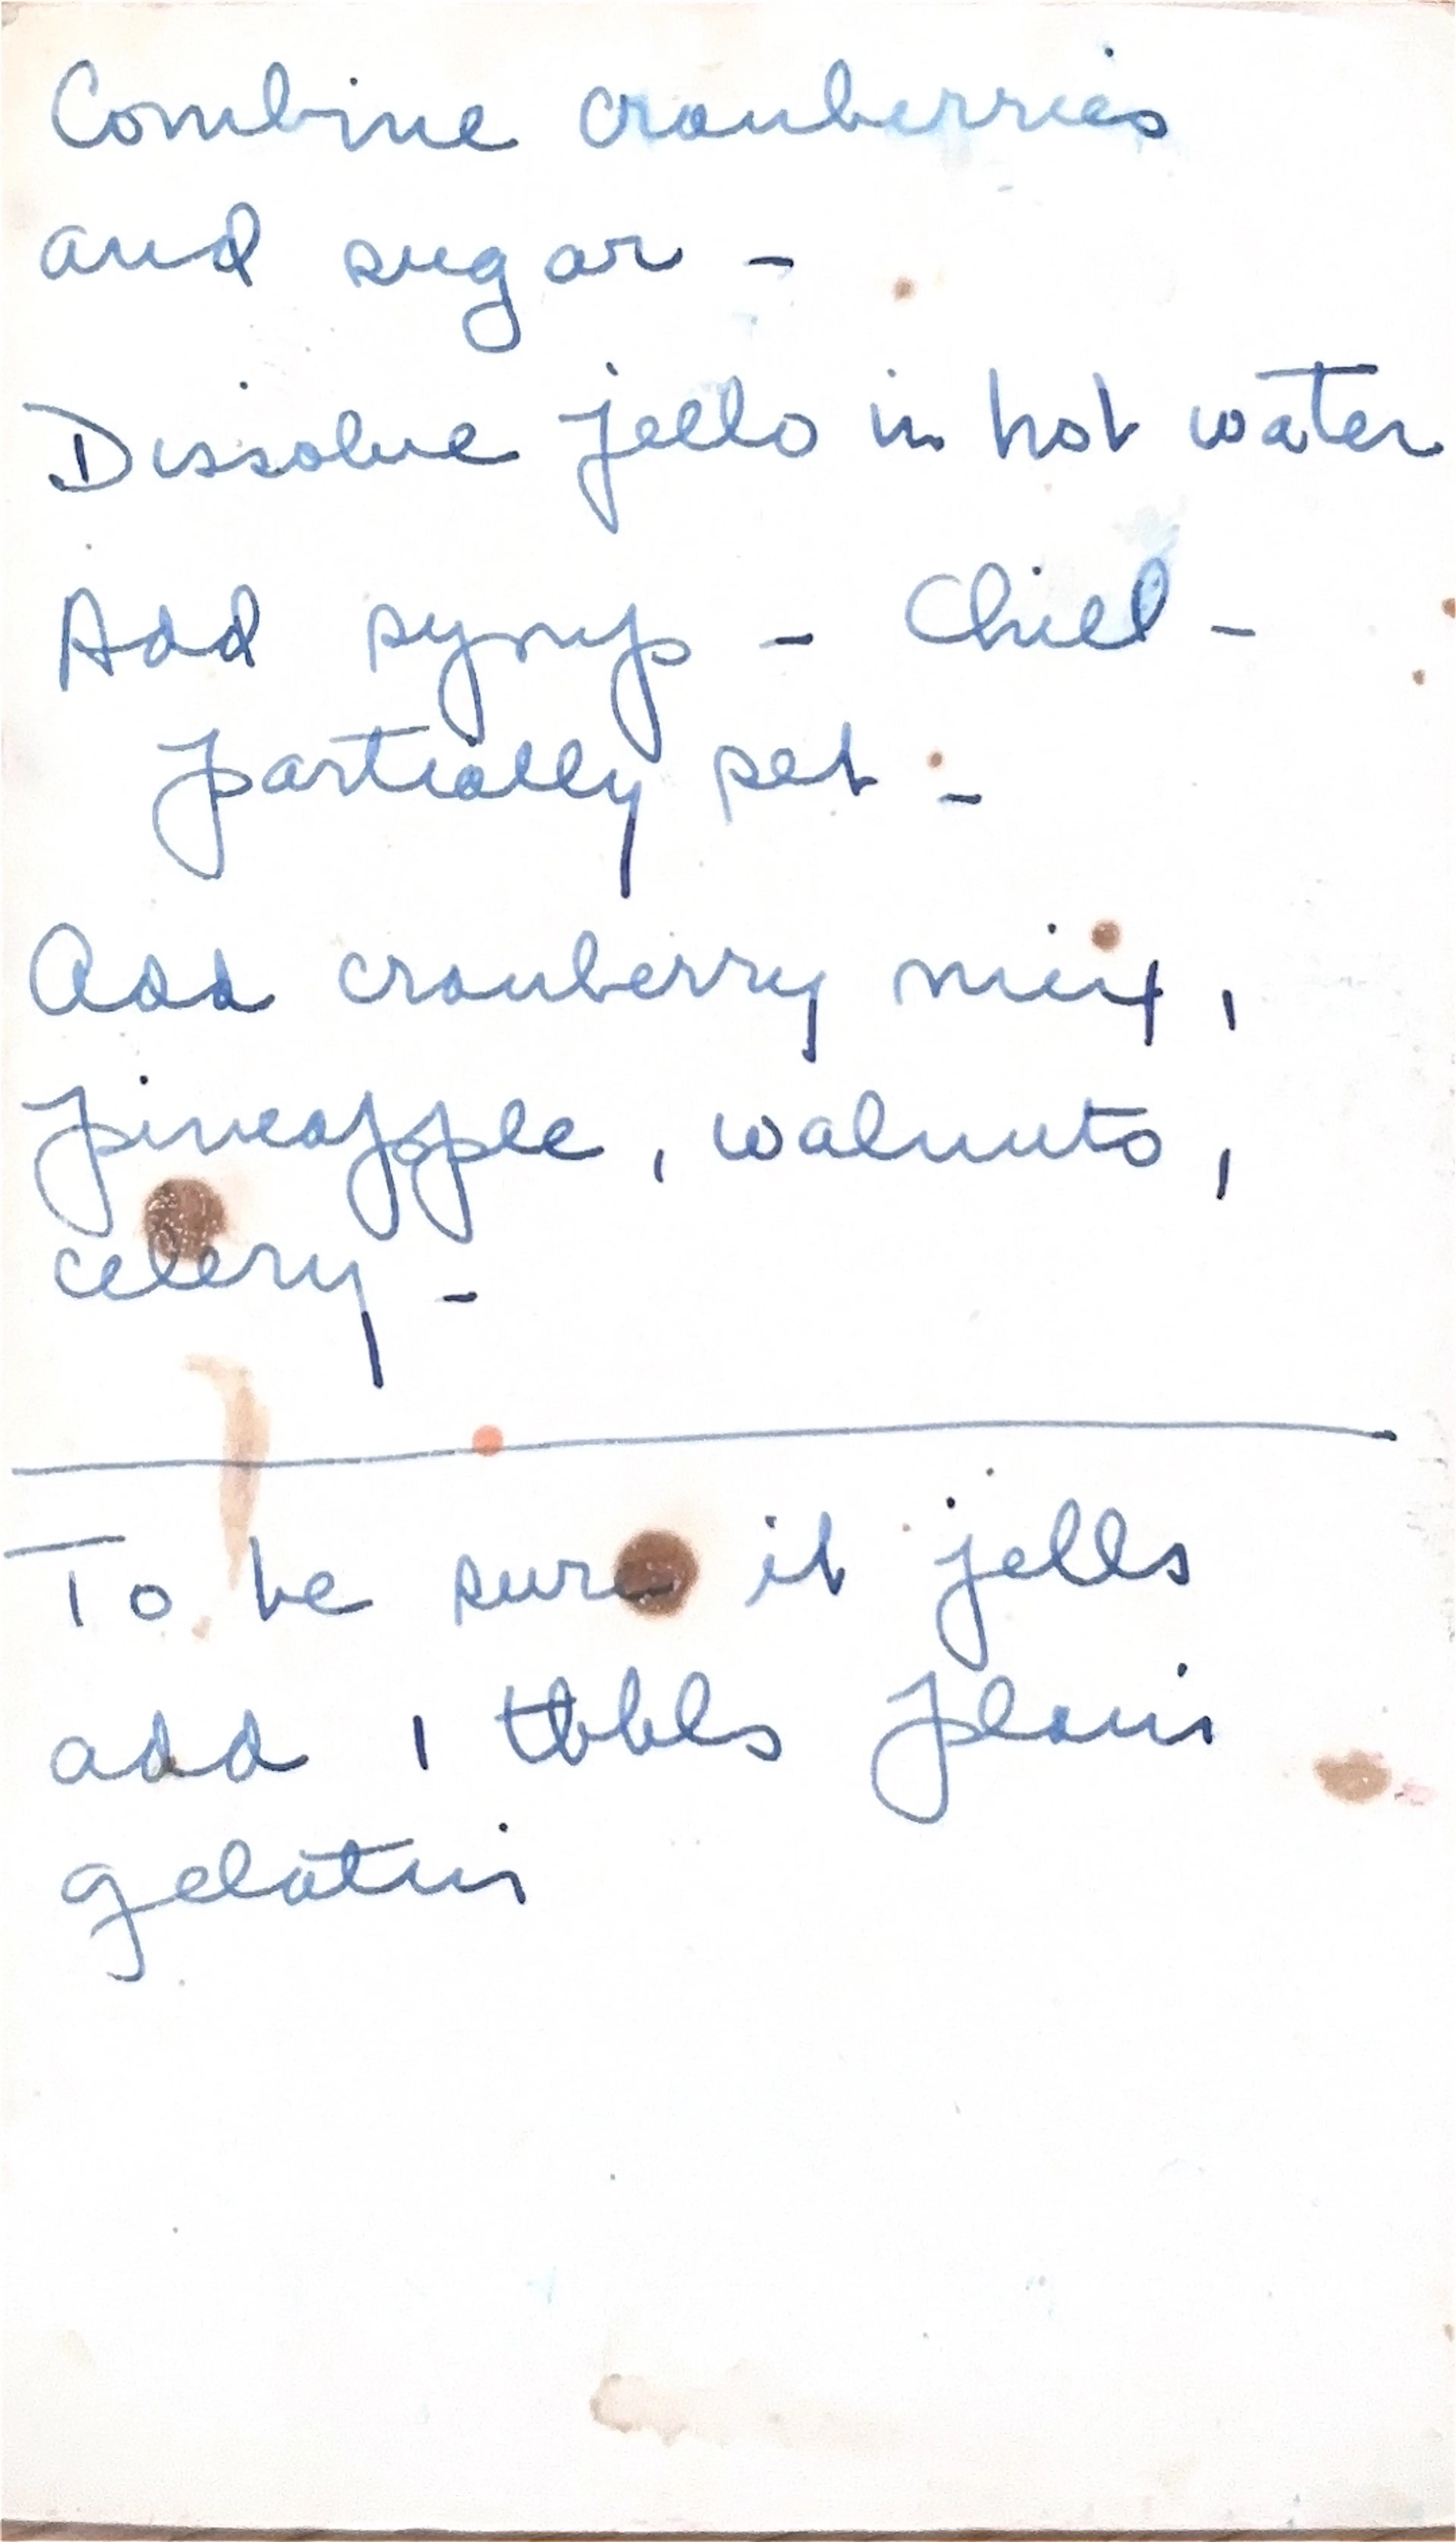 Combine cranberries
and sugar -
Dissolve jello in hot water
Add syrup - Chill -
partially set -
Add cranberry mix,
pineapple, walnuts,
celery -
To be sure it jells
add 1 tbbls plain
gelatin